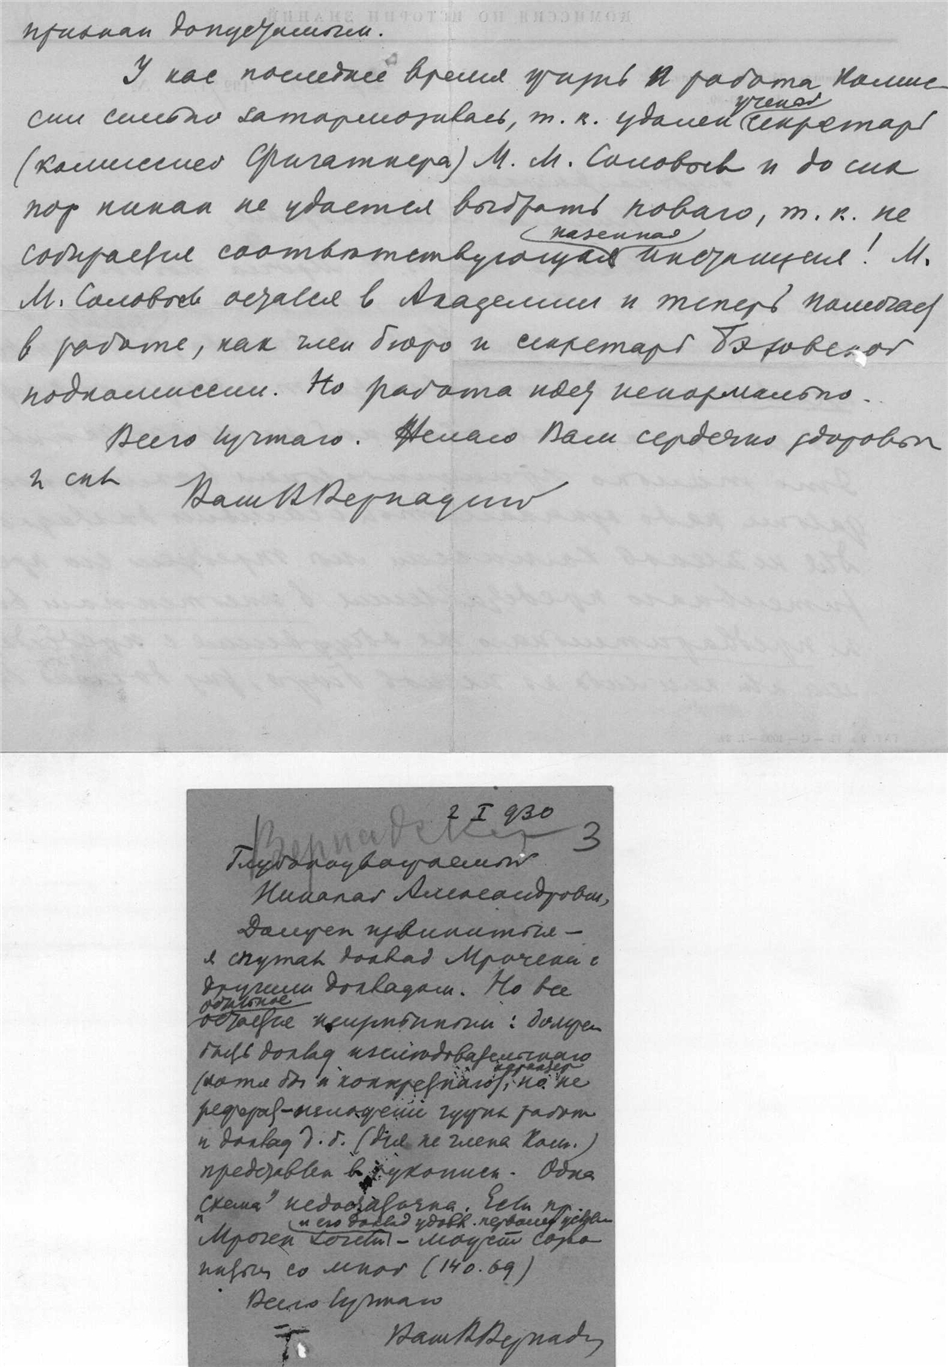 КОМИССИЯ ПО ИСТОРИИ ЗНАНИЙ
признан допустимым.
У нас последнее время жизнь и работа Комис-
сии сильно затормозилась, т. к. удален ученый секретарь
(комиссией Фигатнера) М. М. Соловьев и до сих
пор никак не удается выбрать новаго, т. к. не
собирается соответствующая казенная инстанция! М.
М. Соловьев остался в Академии и теперь помогает
в работе, как член бюро и секретарь Бэровской
подкомиссии. Но работа идет ненормально.
Всего лучшаго. Желаю Вам сердечно здоровья
и сил
Ваш В Вернадский
2 I 930
Вернадский
3
Глубокоуважаемый
Николай Александрович,
Должен извиниться –
я спутал доклад Мрочека с
другим докладом. Но все
остальное остается неизменным: должен
быть доклад исследовательскаго
(хотя бы и конкретнаго) характера, но не
реферат-изложение чужих работ
и доклад д. б. (для не члена Ком.)
представлен в рукописи. Одна
„схема" недостаточна. Если пр.
Мрочек хочет и его доклад удовл. первому услов. – может сгово-
риться со мной (140.69)
Всего лучшаго
Ваш В Вернадс